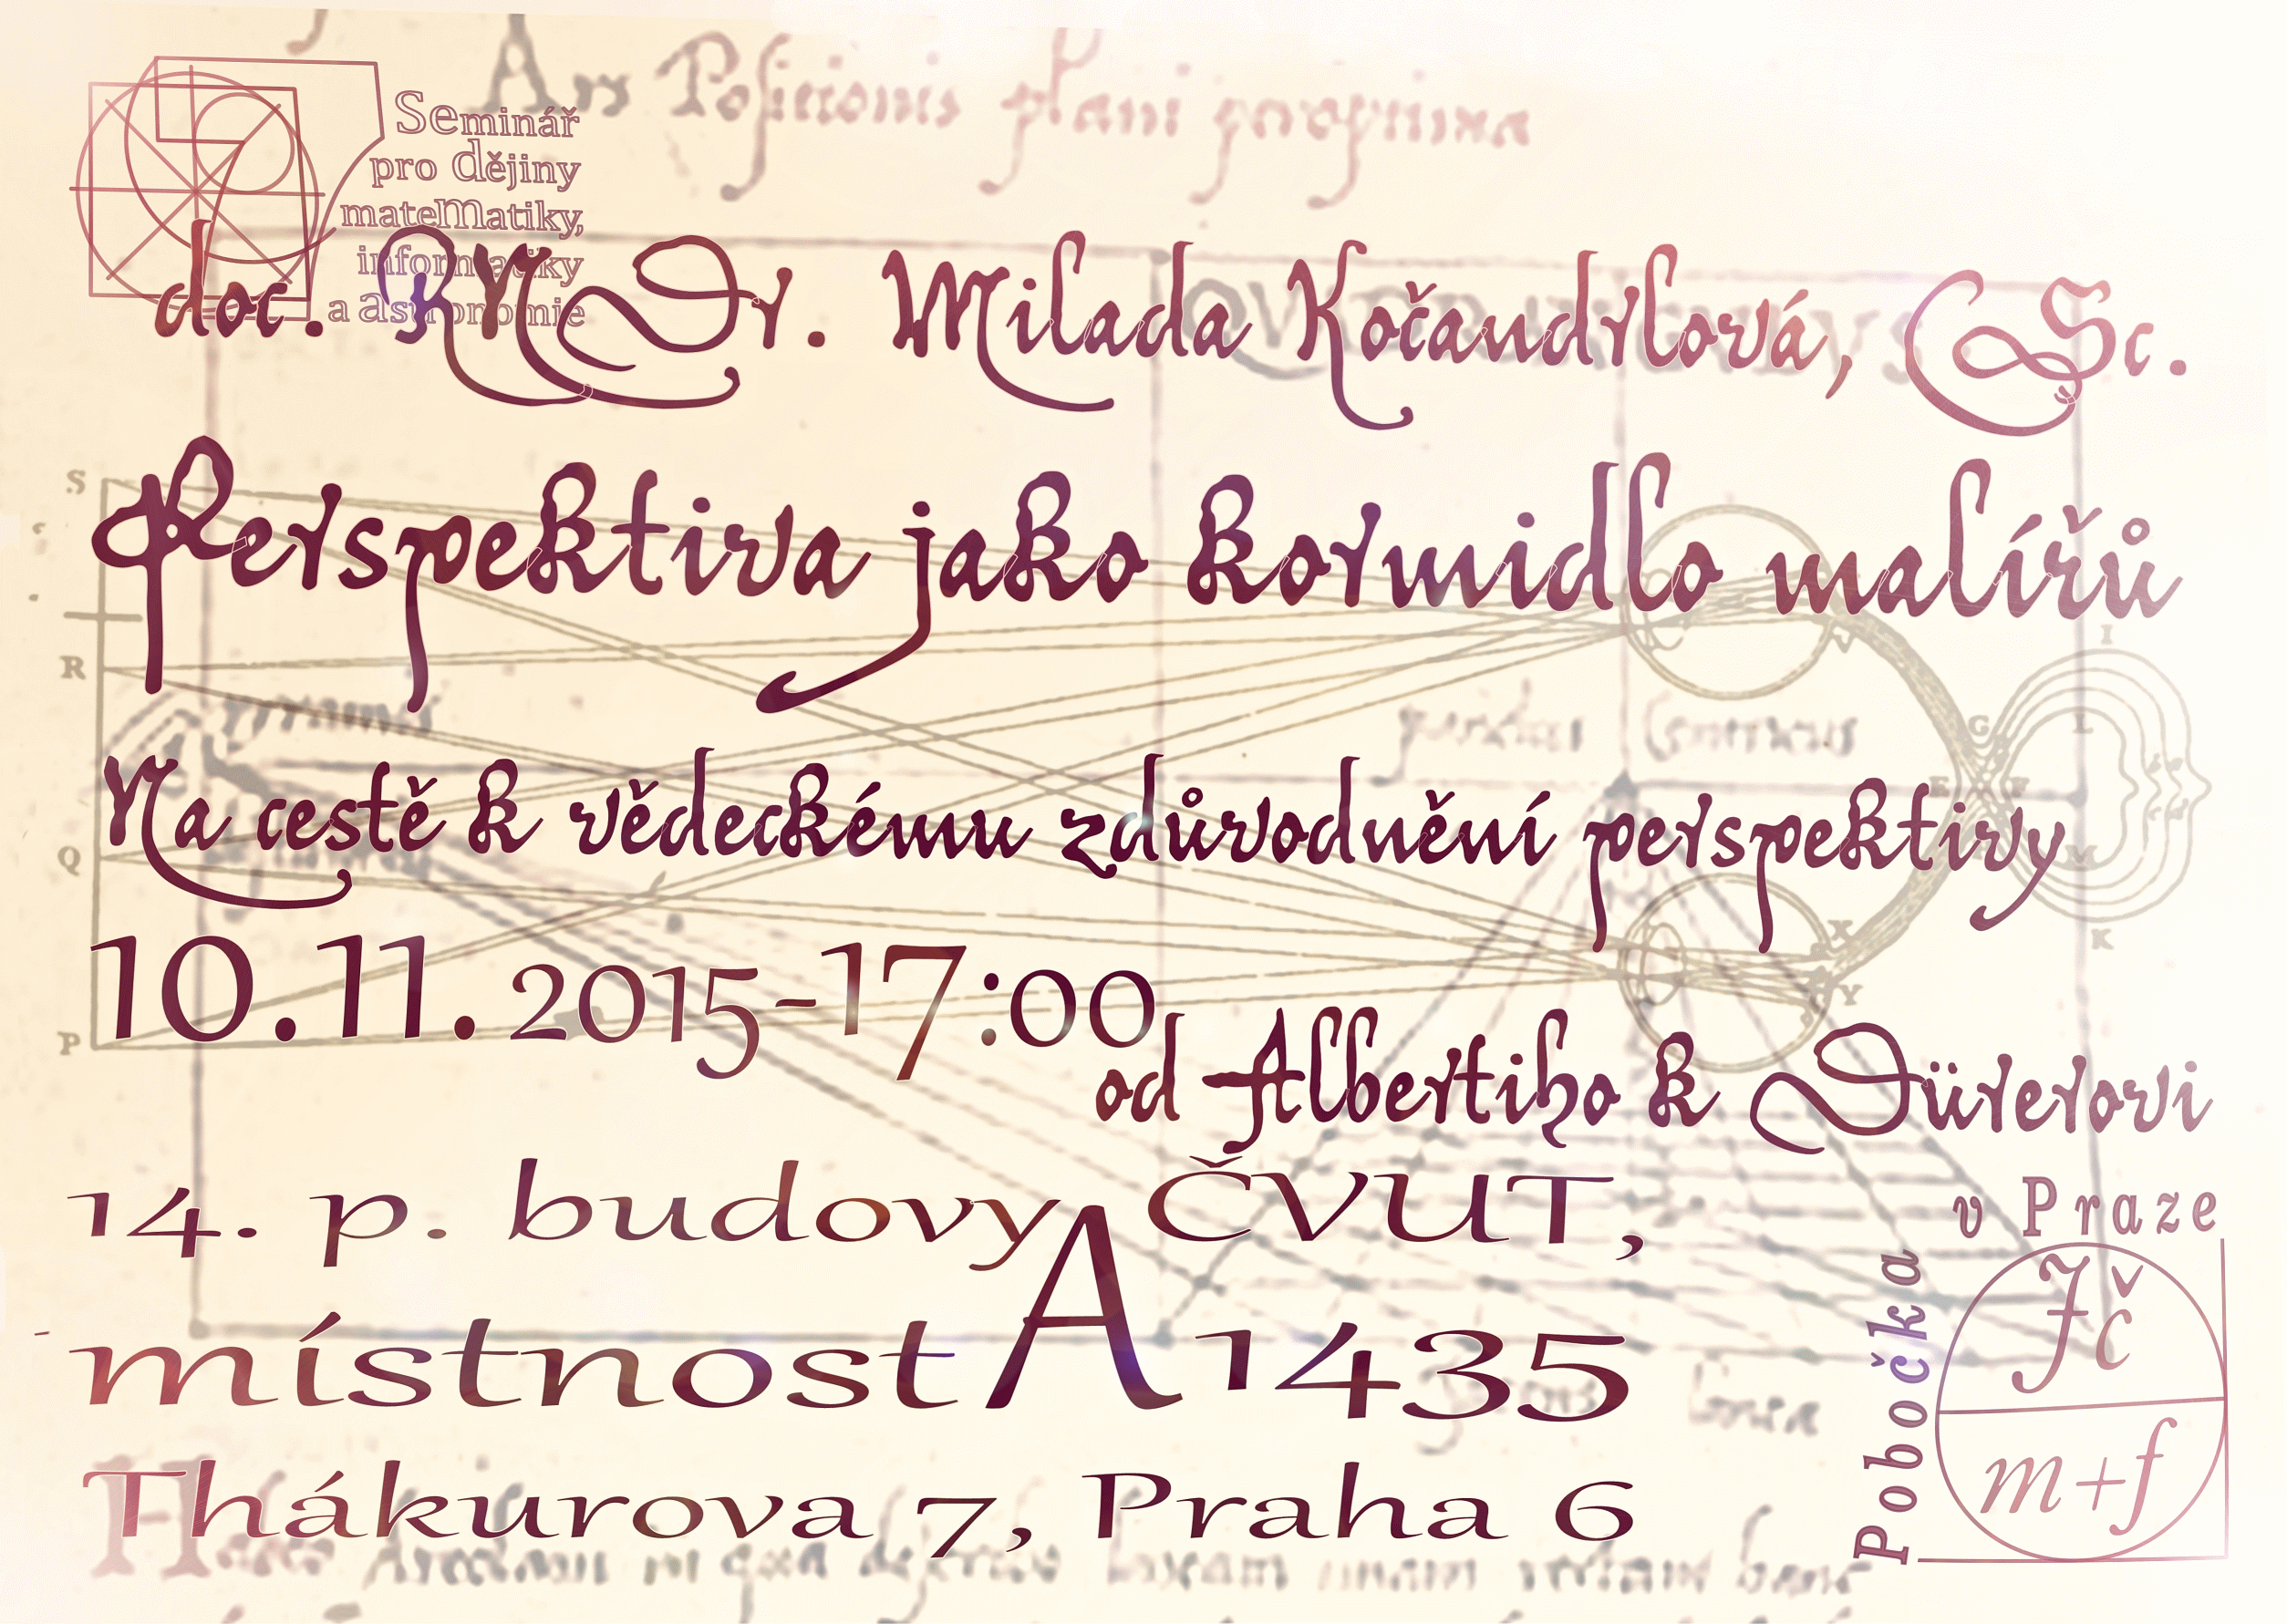 Ars Positionis plani
Seminář
pro dějiny
matematiky,
informatiky
a astronomie
doc. RNDr. Milada Kočandrlová, CSc.
Perspektiva jako kormidlo malířů
S
R
Q
P
I
G
L
E F
M
K
X
Y
Na cestě k vědeckému zdůvodnění perspektivy
10.11.2015-17:00
od Albertiho k Dürerovi
14. p. budovy A ČVUT,
místnost A1435
Thákurova 7, Praha 6
Pobočka
v Praze
Jč
m+f